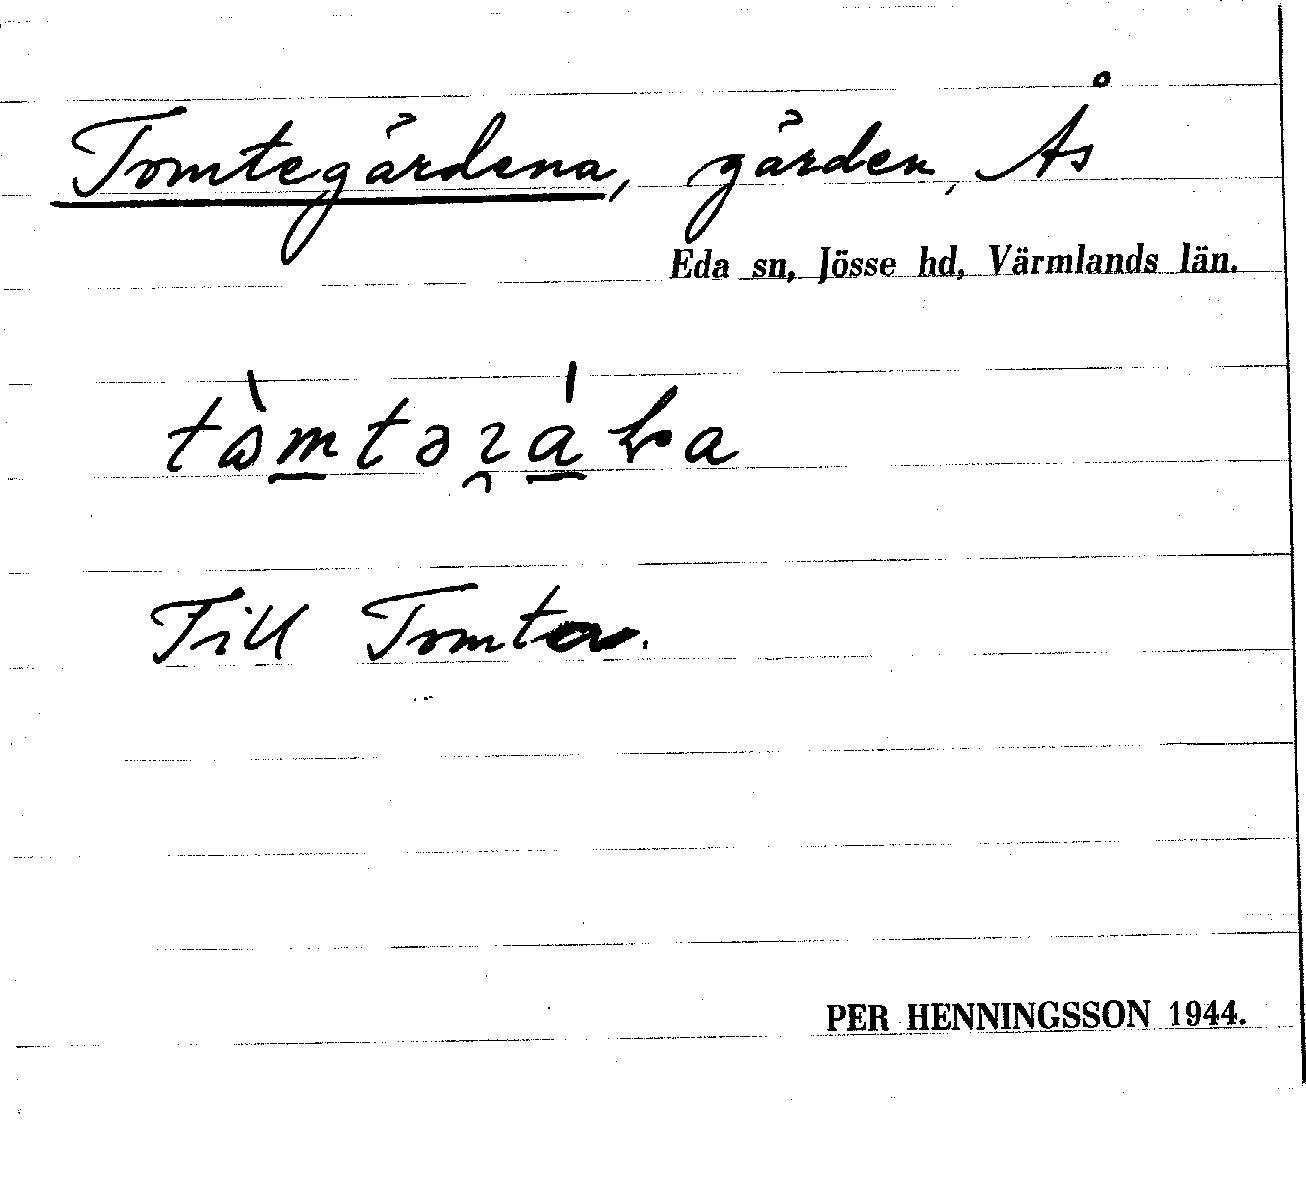 Tomtegårdena, gården, Ås
Eda sn, Jösse hd, Värmlands län.
Till Tomta.
PER HENNINGSSON 1944.